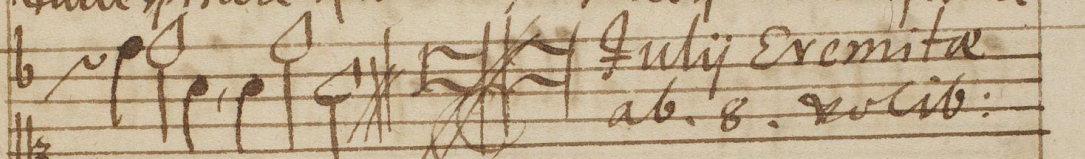 Julij Eremitæ
ab. 8. vocib: